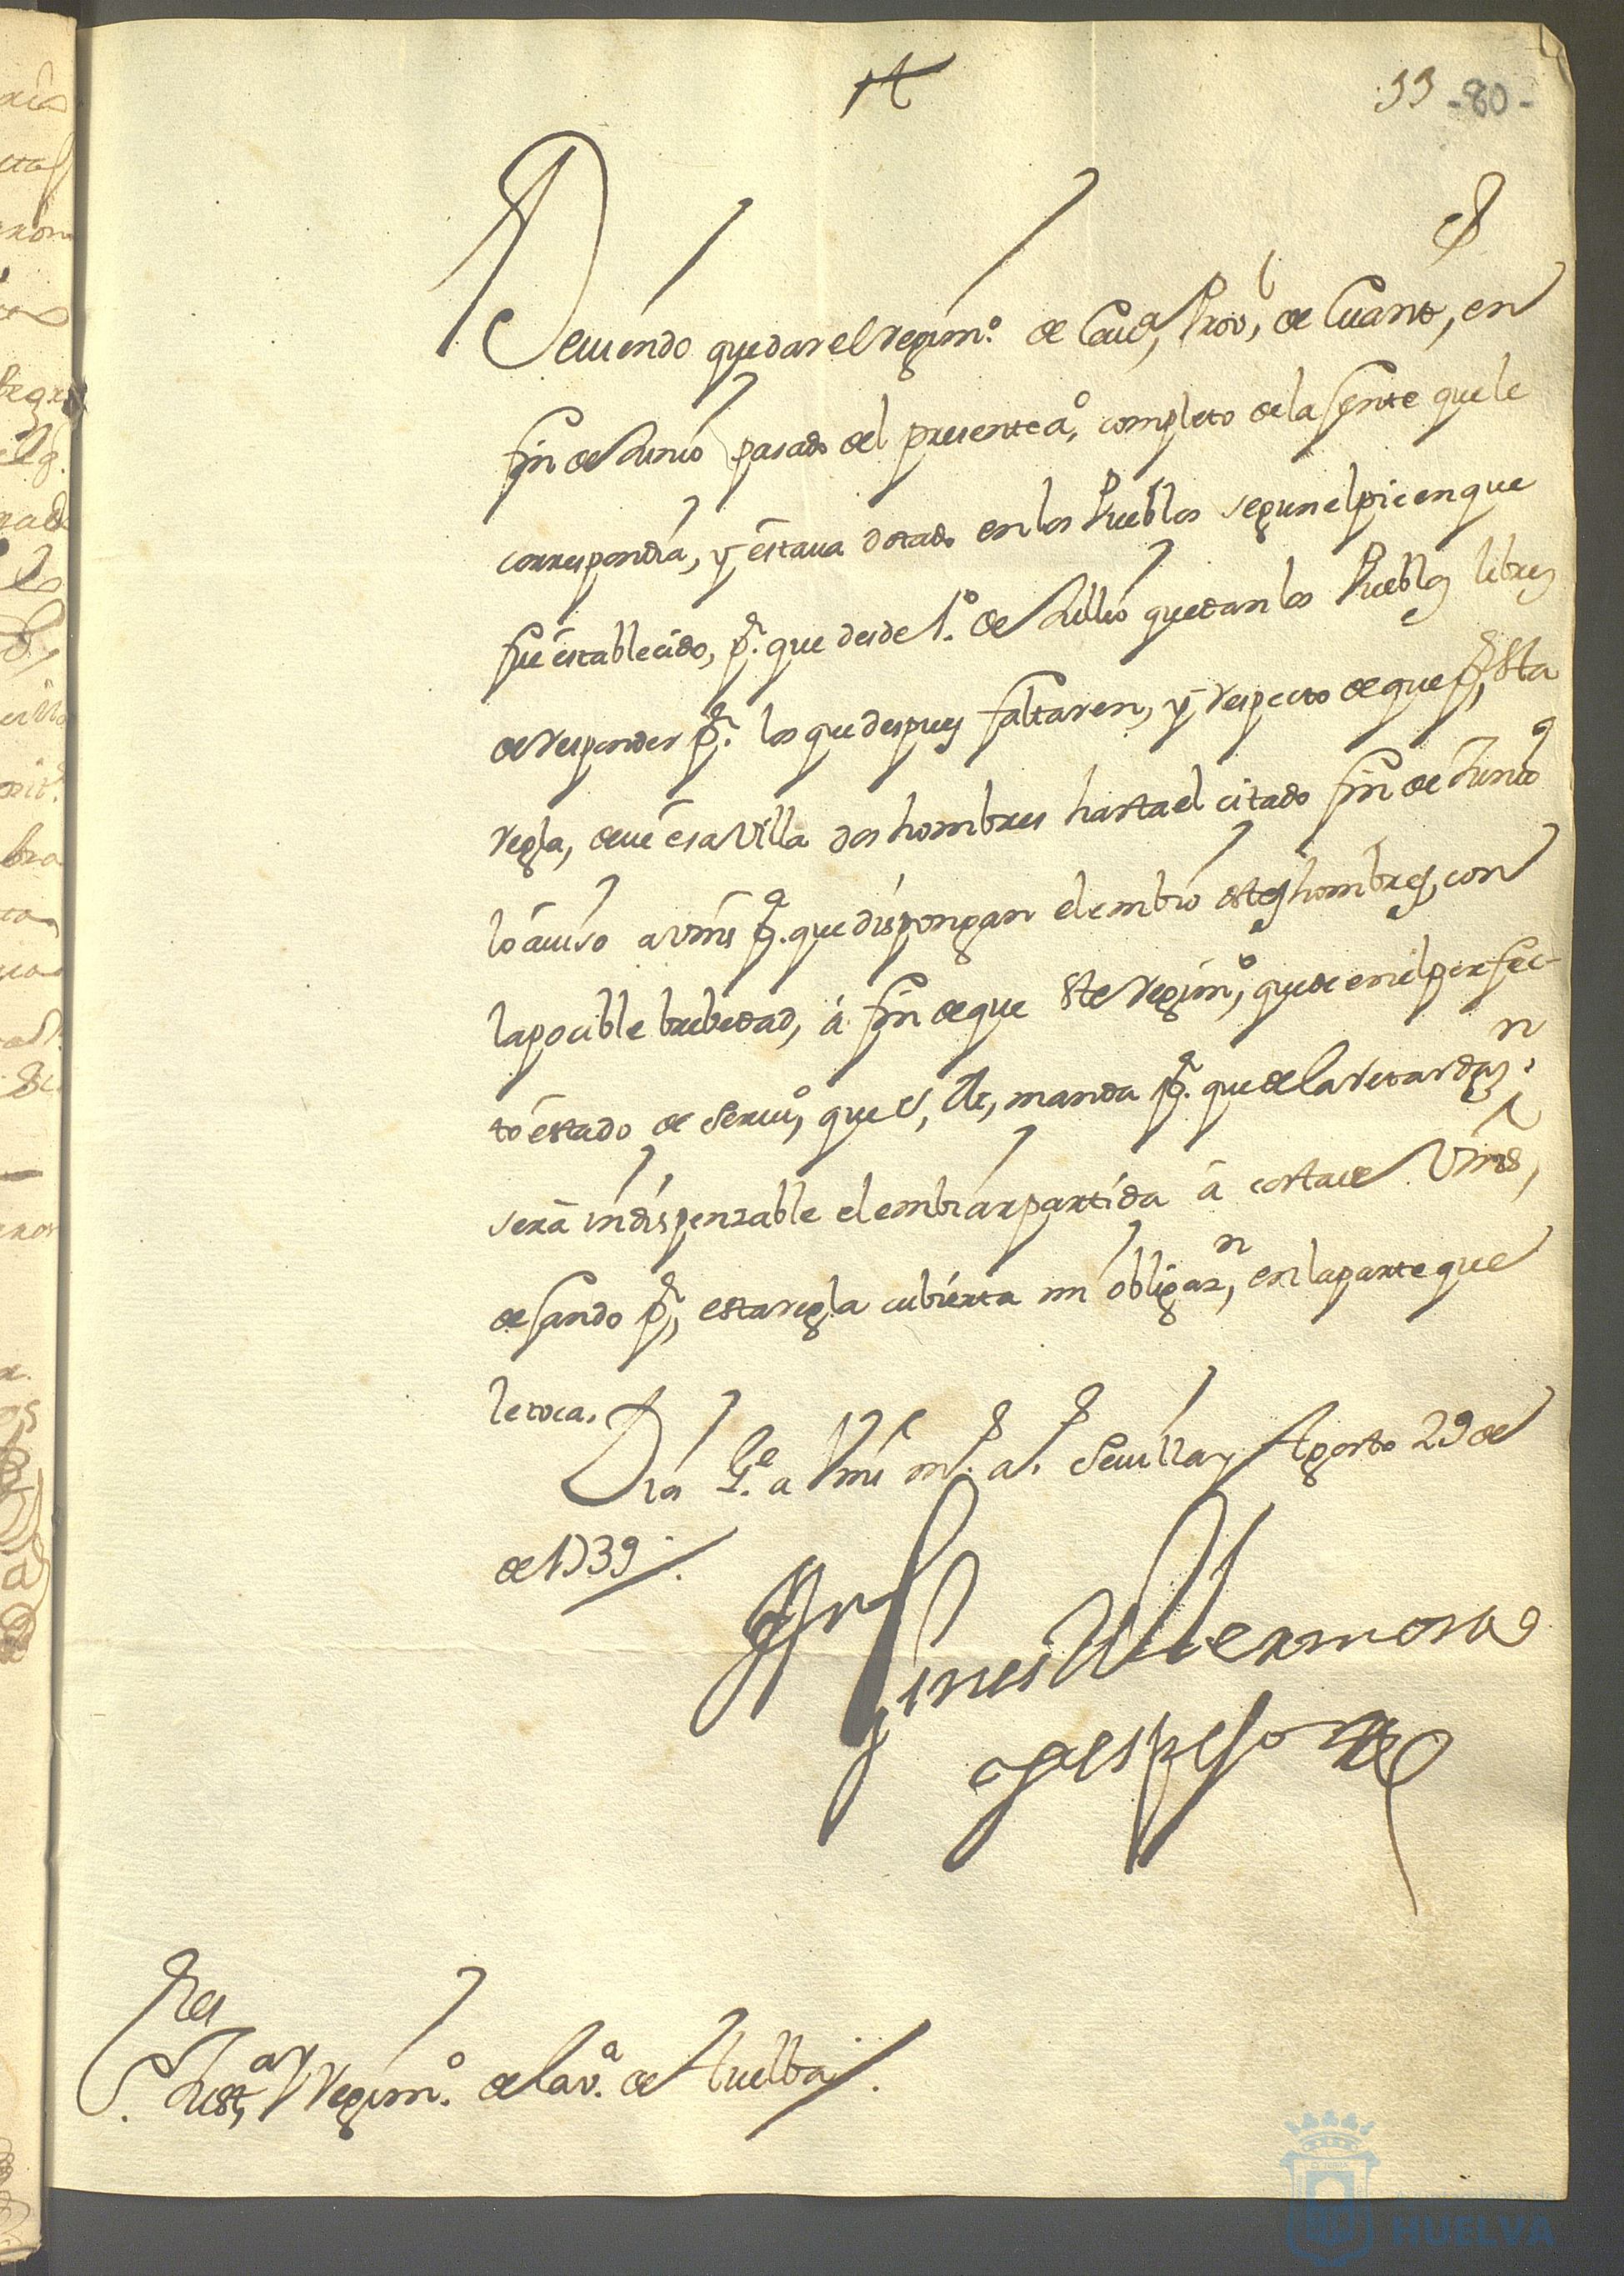 33 -80-
Deuiendo quedar el regim.º de Cau.ª Prou.l de Quant.s, en
fin de Junio pasado del presente a.º completo de la Jente que le
correspondia, y estaua dotado en los Pueblos segun el pie en que
fue establecido, p.r que desde 1.º de Jullio quedan los Pueblos libres
de responder p.r los que despues faltaren, y respecto de que p.r Sta
regla, deue esa Villa dos hombres hasta el citado fin de Junio
lo auiso a vms p.a que dispongan el embio destos hombres, con
la pocible brebedad, á fin de que Ste regim.º quede en el perfec-
to estado de Seruº, que S, M, manda p.r que de la retardaz.n
será indispensable el embiar partida á costa de Vms,
dejando p.r esta regla cubierta mi obligaz.n, en la parte que
le toca.
Dios G.e a Vms m.s a.s Seuilla y Agosto 29 de
de 1739.
Gines de Hermosa
y espejo
Sres
S. Just.ª y Regim.º de la v.ª de Huelba
HUELVA